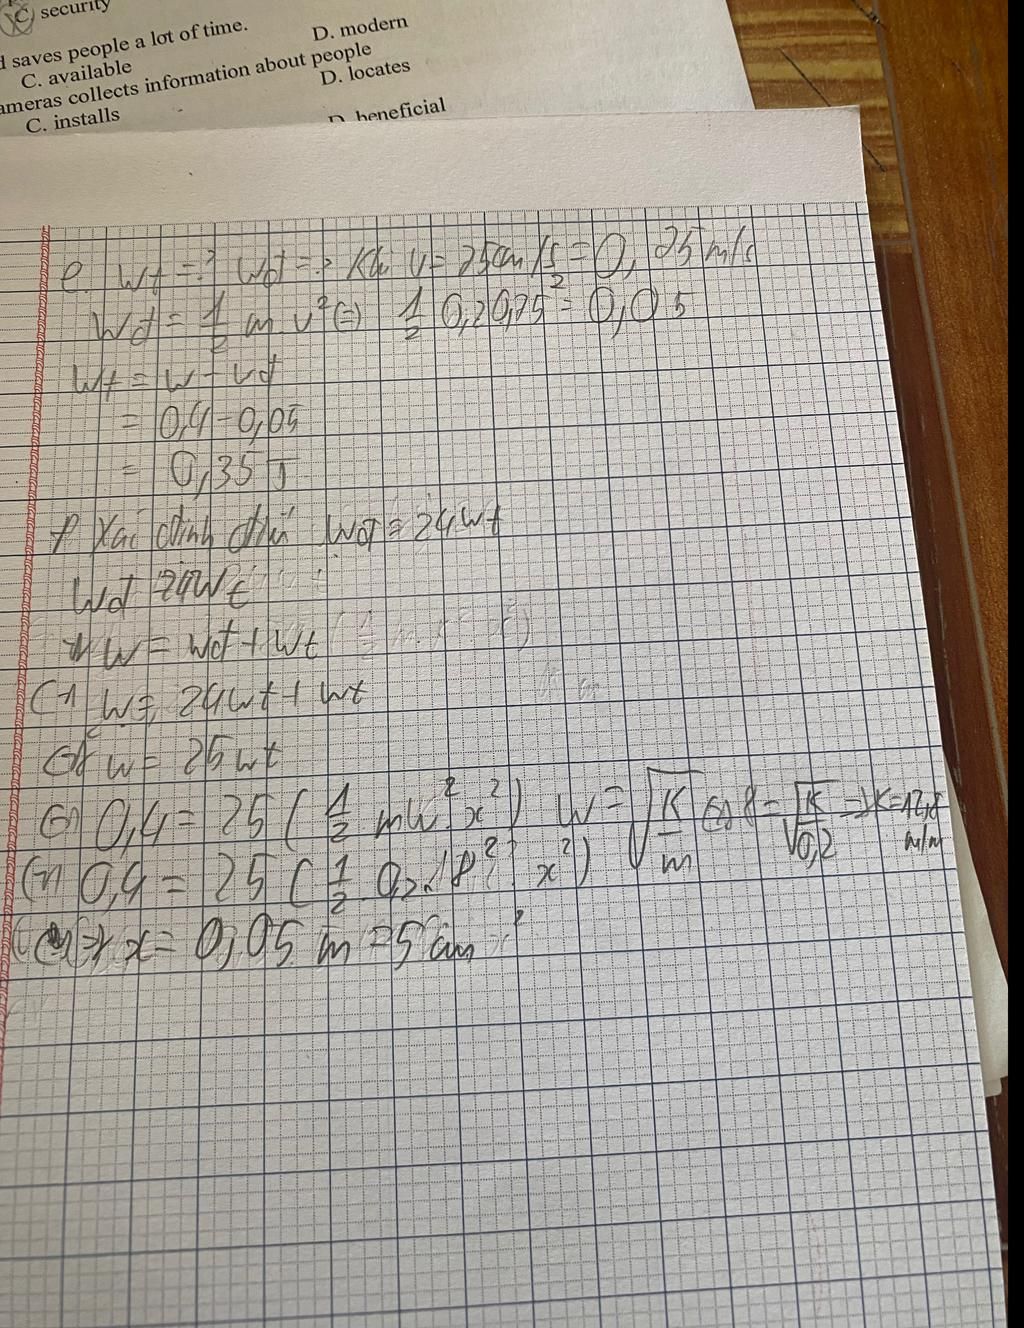 C security
d saves people a lot of time.
C. available D. modern
ameras collects information about people
C. installs D. locates
D beneficial
e. Wt = ? Wđ = ? Khi v = 25cm/s = 0,25 m/s
Wđ = 1/2 m v² (=) 1/2 0,2 0,25² = 0,05
Wt = W - Wđ
= 0,4 - 0,05
= 0,35 J
f Xác định Wđ = 24Wt
Wđ 24Wt
W = Wđ + Wt
W = 24Wt + Wt
W = 25Wt
0,4 = 25 (1/2 mW² x²) W = √K/m 8 = √K/√0,2 => K = 12,8 N/m
0,4 = 25 (1/2 0,2 8² x²)
=> x = 0,05 m = 5 cm